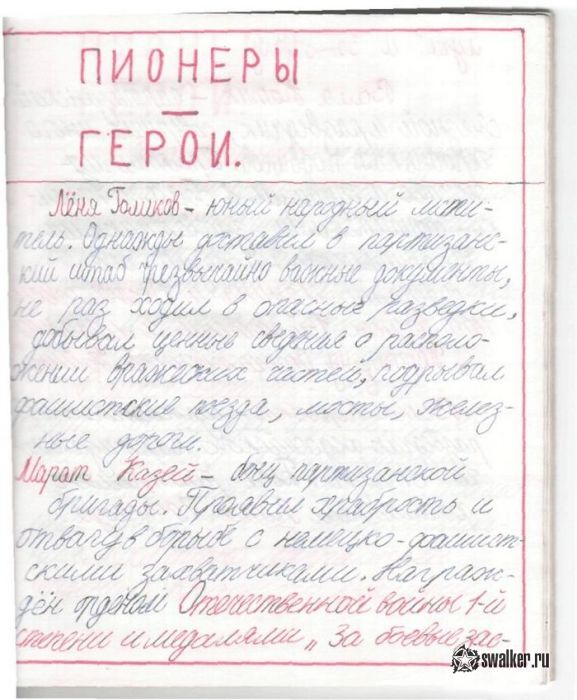 ПИОНЕРЫ
—
ГЕРОИ.
Лёня Голиков – юный народный мсти-
тель. Однажды доставил в партизанс-
кий штаб чрезвычайно важные документы,
не раз ходил в опасные разведки,
добывал ценные сведения о располо-
жении вражеских частей, подрывал
фашистские поезда, мосты, желез-
ные дороги.
Марат Казей – боец партизанской
бригады. Проявил храбрость и
отвагу в борьбе с немецко-фашист-
скими захватчиками. Награж-
дён орденом Отечественной войны 1-й
степени и медалями „За боевые зас-
swalker.ru